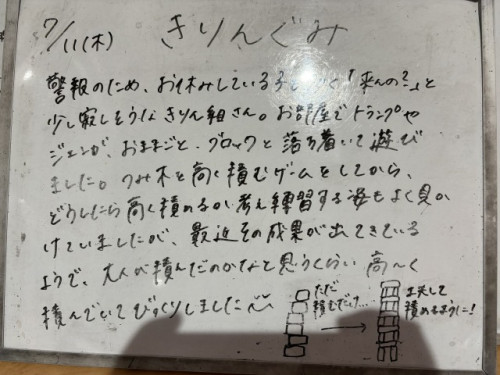 7/11(木) きりんぐみ
警報のため、お休みしている子もいて「来んの?」と
少し寂しそうなきりん組さん。お部屋でトランプや
ジェンガ、おままごと、ブロックと落ち着いて遊び
ました。つみ木を高く積むゲームをしてから、
どうしたら高く積めるか考え練習する姿もよく見か
けていましたが、最近その成果が出てきている
ようで、大人が積んだのかなと思うくらい高〜く
積んでいてびっくりしました
ただ
積むだけ...
工夫して
積めるように!